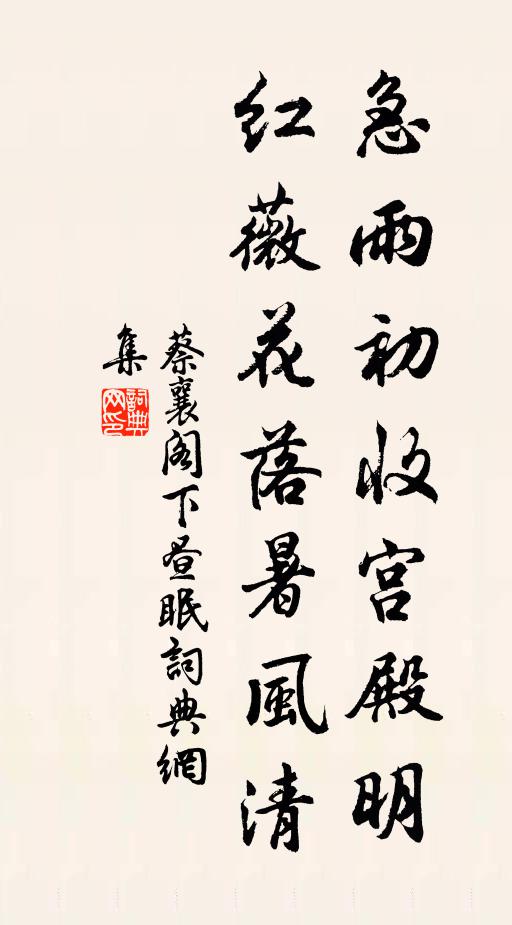 急雨初收宫殿明
红薇花落暑風清
蔡襄阁下昼眠詞典網
集
詞典
网印